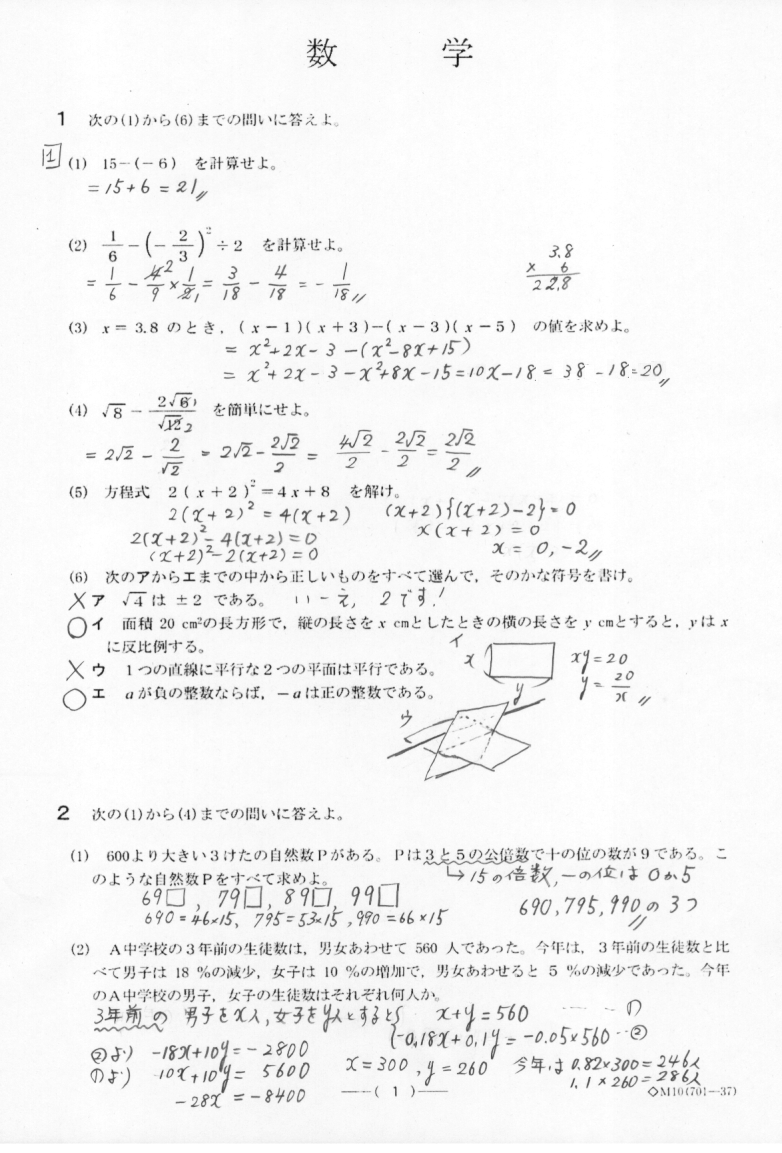 数 学
1 次の(1)から(6)までの問いに答えよ。
1
(1) 15-(-6) を計算せよ。
= 15+6 = 21
(2) 1/6 - (-2/3)² ÷ 2 を計算せよ。
= 1/6 - 4²/9 × 1/2₁ = 3/18 - 4/18 = - 1/18
3.8
× 6
22.8
(3) x = 3.8 のとき，(x-1)(x+3)-(x-3)(x-5) の値を求めよ。
= x²+2x-3-(x²-8x+15)
= x²+2x-3-x²+8x-15=10x-18=38-18=20
(4) √8 - 2√6/√12 を簡単にせよ。
= 2√2 - 2/√2 = 2√2 - 2√2/2 = 4√2/2 - 2√2/2 = 2√2/2
(5) 方程式 2(x+2)²=4x+8 を解け。
2(x+2)² = 4(x+2)
2(x+2)²-4(x+2)=0
(x+2)²-2(x+2)=0
(x+2){(x+2)-2}=0
x(x+2)=0
x = 0, -2
(6) 次のアからエまでの中から正しいものをすべて選んで，そのかな符号を書け。
× ア √4 は ±2 である。 いーえ, 2です!
○ イ 面積 20 cm²の長方形で，縦の長さを x cmとしたときの横の長さを y cmとすると，y は x
に反比例する。
× ウ 1つの直線に平行な2つの平面は平行である。
○ エ aが負の整数ならば，-aは正の整数である。
イ
x
y
xy=20
y=20/x
ウ
2 次の(1)から(4)までの問いに答えよ。
(1) 600より大きい3けたの自然数Pがある。Pは3と5の公倍数で十の位の数が9である。こ
のような自然数Pをすべて求めよ。
↳15の倍数,一の位は0か5
69□, 79□, 89□, 99□
690=46×15, 795=53×15, 990=66×15
690,795,990の3つ
(2) A中学校の3年前の生徒数は，男女あわせて 560 人であった。今年は，3年前の生徒数と比
べて男子は 18 %の減少，女子は 10 %の増加で，男女あわせると 5 %の減少であった。今年
のA中学校の男子，女子の生徒数はそれぞれ何人か。
3年前の 男子をx人,女子をy人とすると { x+y=560 ---①
-0.18x+0.1y=-0.05×560--②
②より -18x+10y=-2800
①より 10x+10y= 5600
-28x =-8400
x=300, y=260
今年は 0.82×300=246人
1.1×260=286人
—( 1 )—
◇M10(701—37)